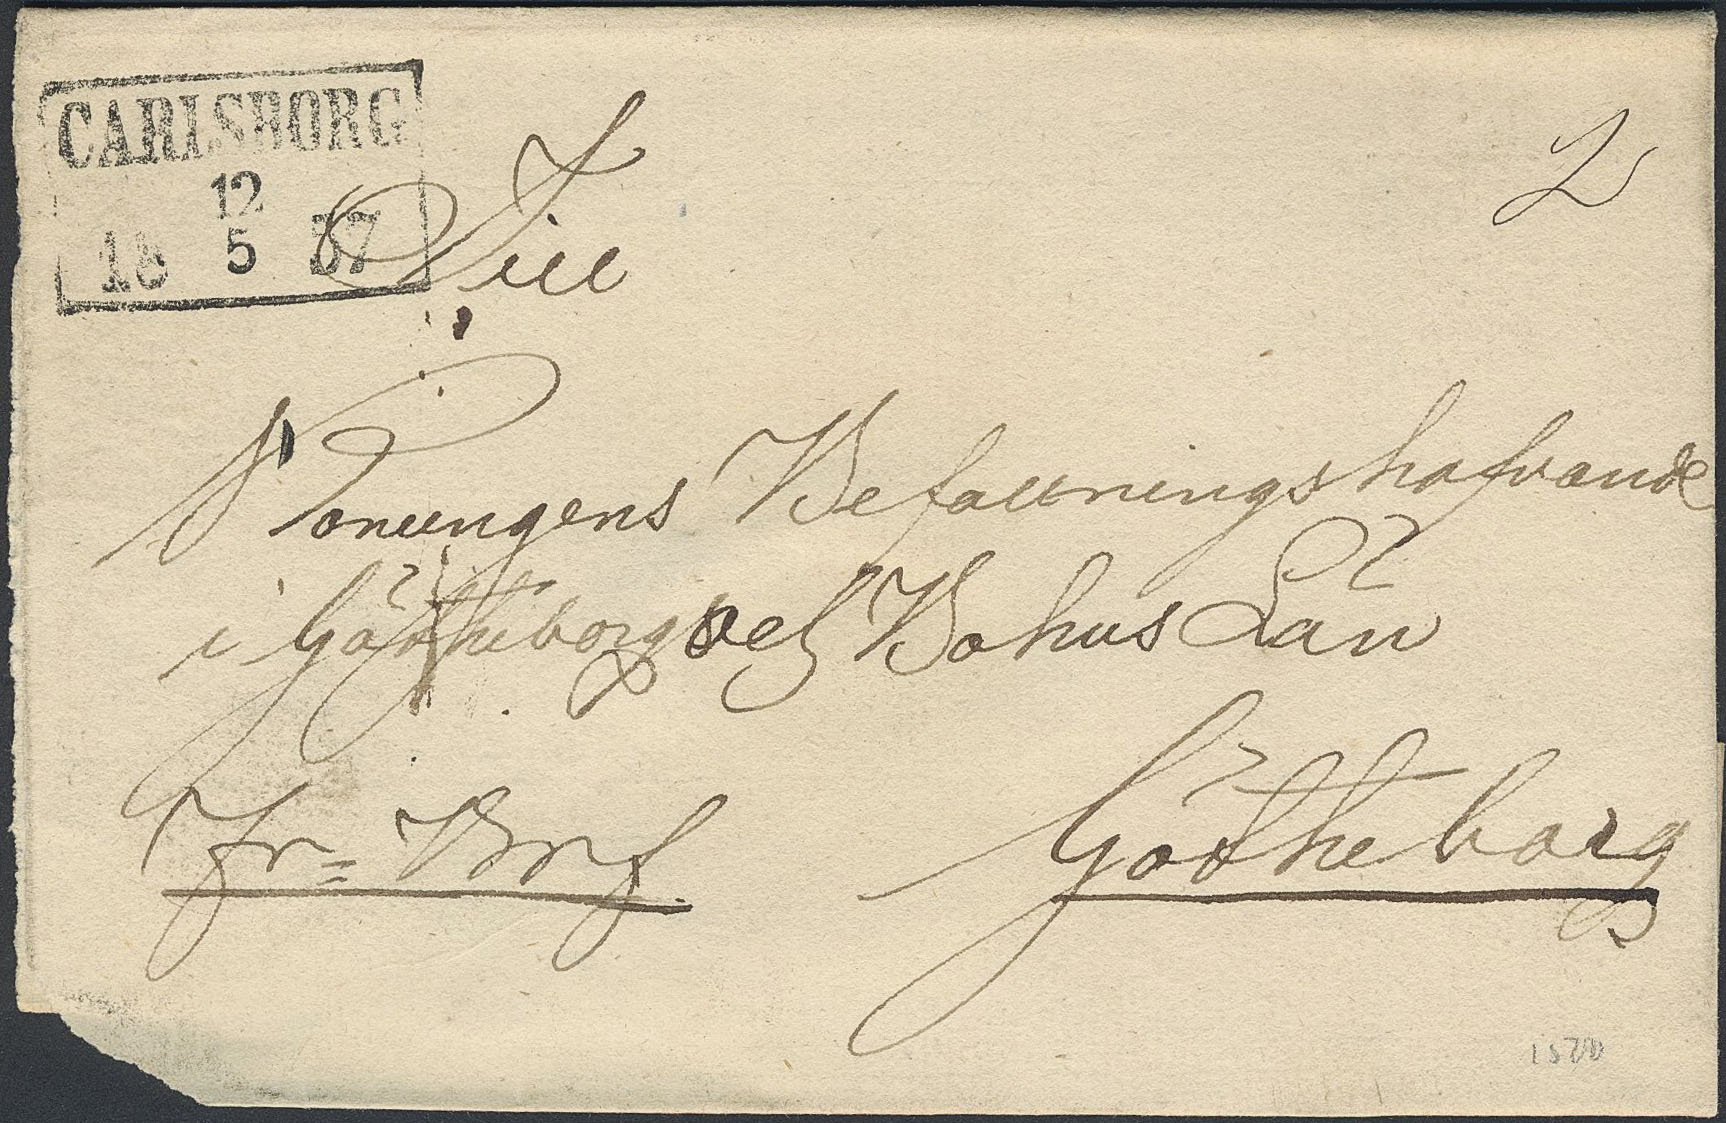 CARLSBORG
12
18 5 57
2
Till
Konungens Befallningshafvande
i Götheborgs och Bohus Län
Fr= Bref.
Götheborg
1500